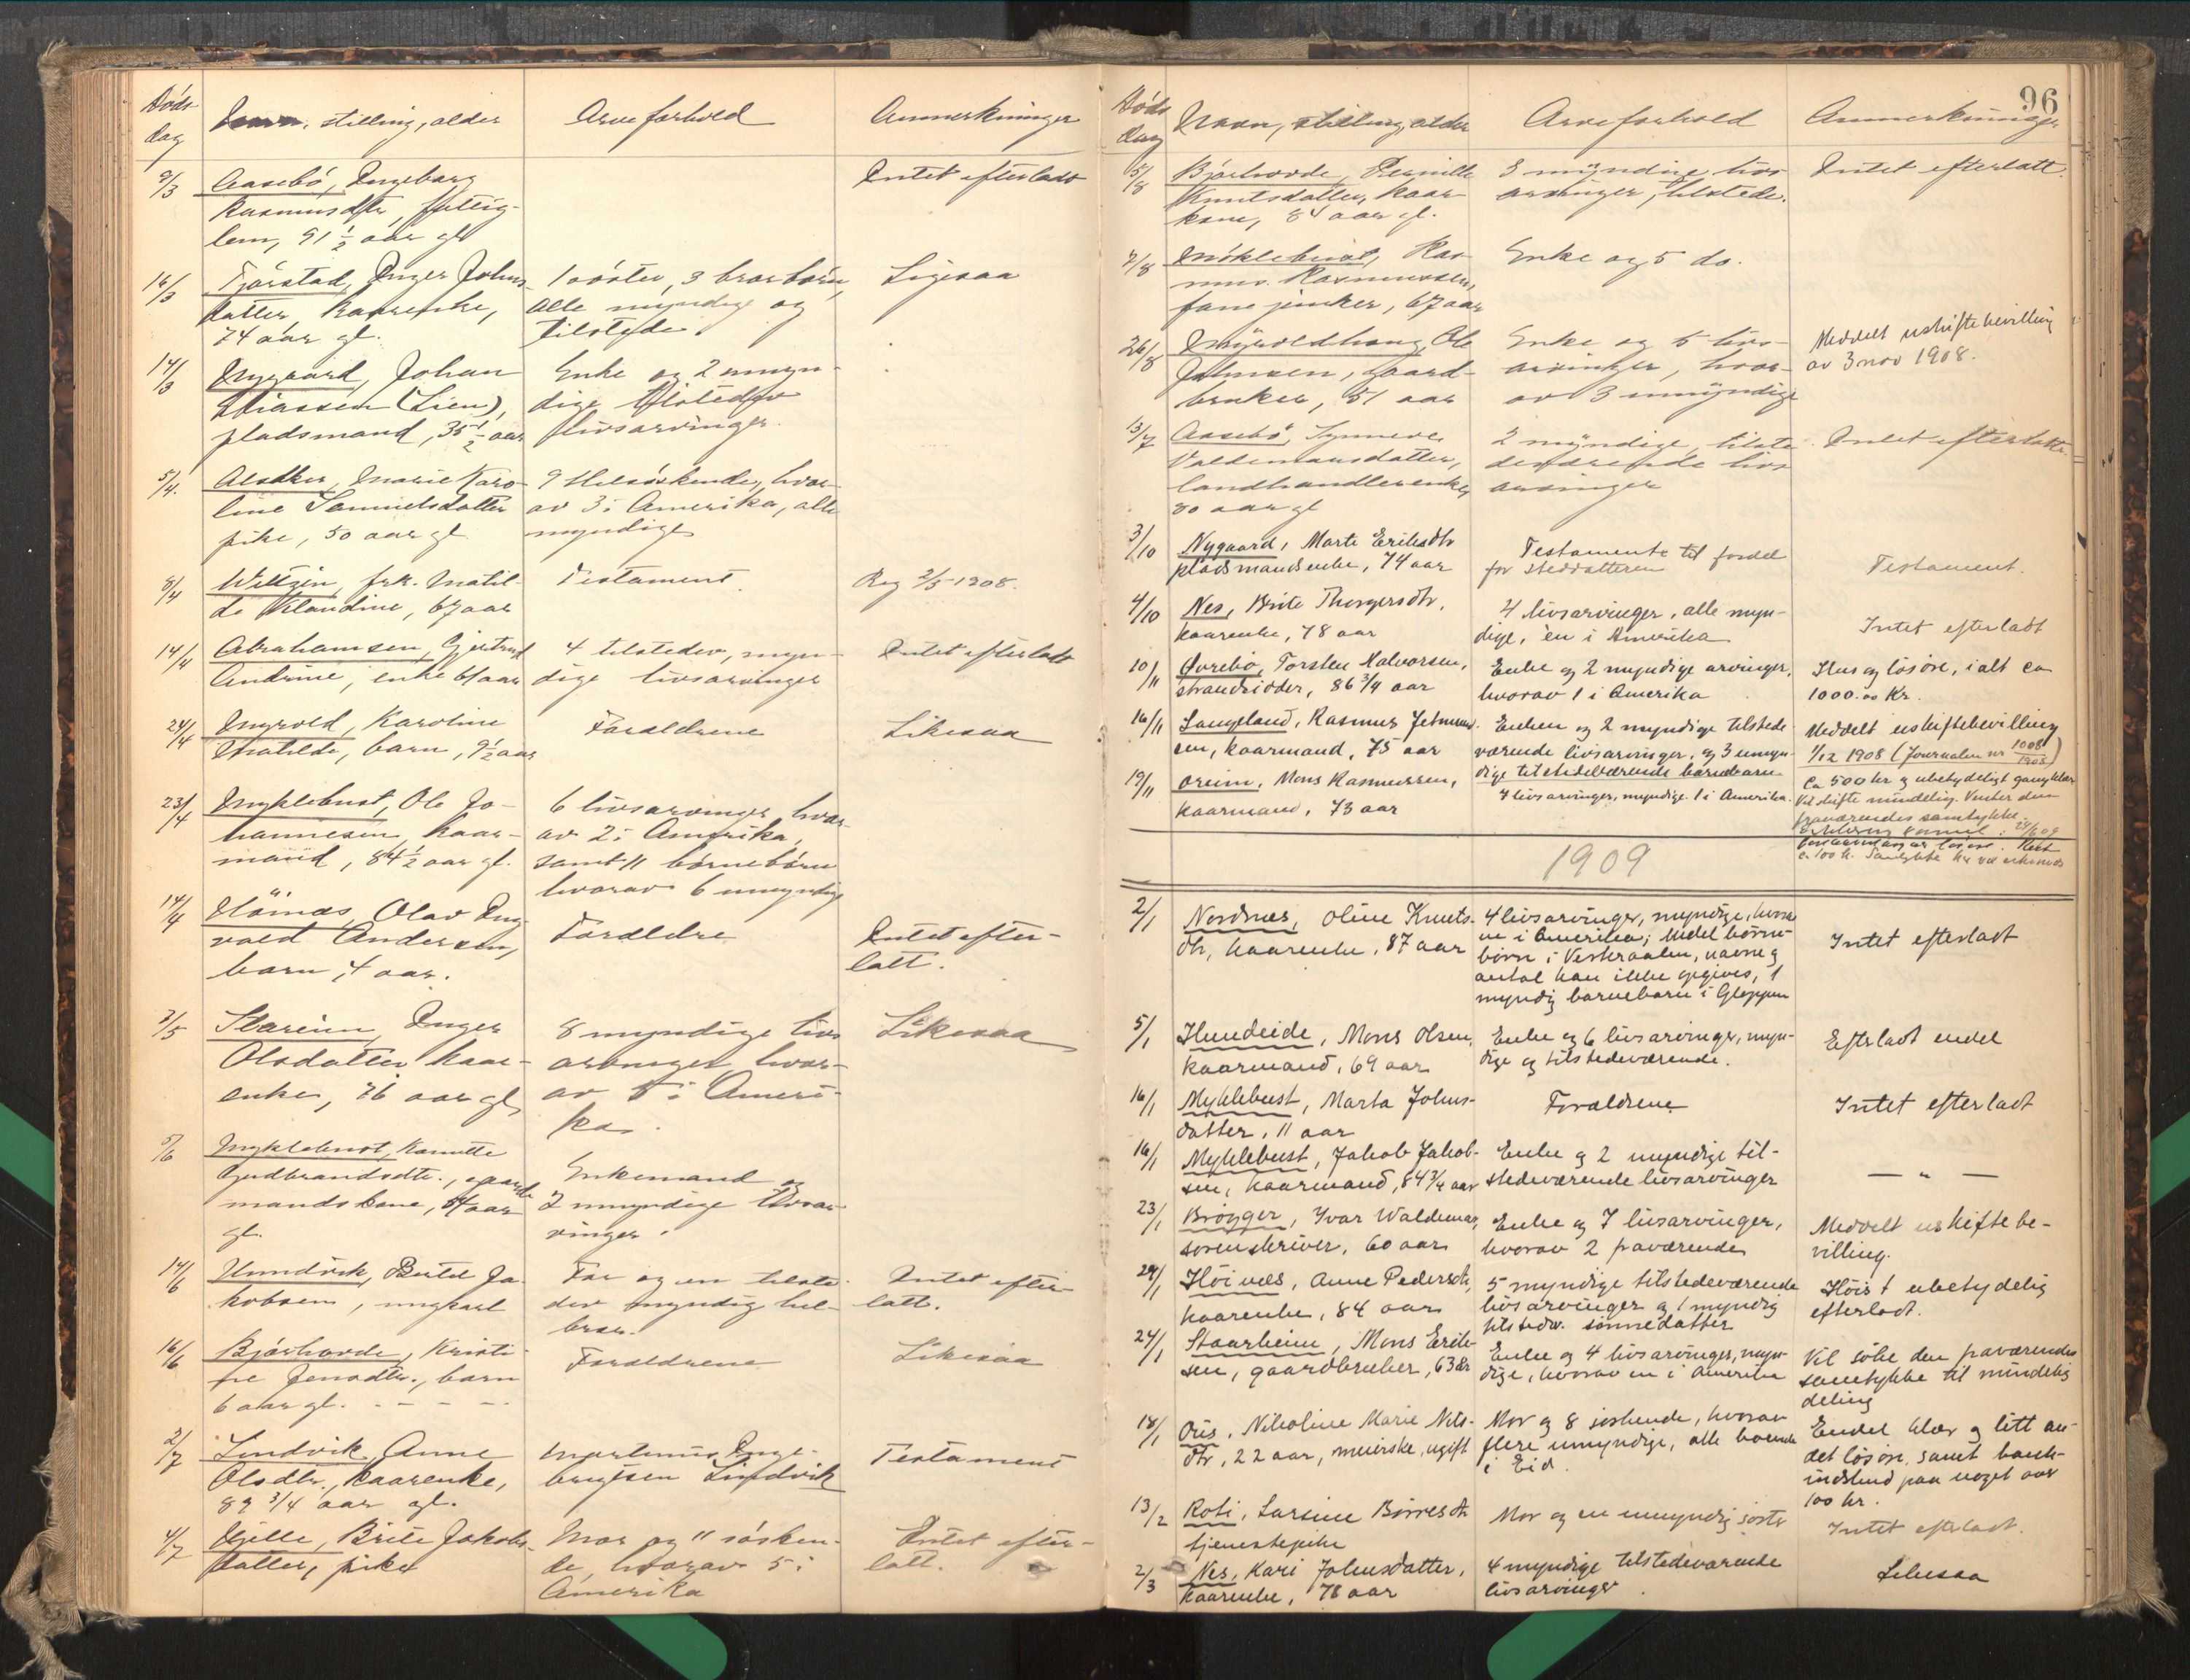 Döds
dag
Navn, stilling, alder
Arveforhold
Anmerkninger
9/3
Aasebö, Ingeborg
Rasmusdtr, fattig-
lem, 91 1/2 aar gl
Intet efterladt
16/3
Tjörstad, Inger Johns-
datter, kaarenke,
74 aar gl.
1 söster, 3 brorbörn,
alle myndige og
tilstede.
Ligesaa
14/3
Nygaard, Johan
(Lien),
pladsmand, 35 1/2 aar
Enke og 2 umyn-
dige tilstedev
livsarvinger.
5/4
Alsaker, Marie Karo-
line Samuelsdatter
pike, 50 aar gl
9 helsöskende, hvor-
av 3 i Amerika, alle
myndige
8/4
frk. Matil-
de Klaudine, 67 aar
Testament.
Reg 2/5-1908.
14/4
Abrahamsen, Gjertrud
Andrine, enke 61 aar
4 tilstedev, myn-
dige livsarvinger
Intet efterladt
24/4
Myrold, Karoline
Matilde, barn, 9 1/2 aar
Forældrene
Likesaa
23/4
Myklebust, Ole Jo-
hannesen, kaar-
mand, 84 1/2 aar gl.
6 livsarvinger hvor-
av 2 i Amerika,
samt 11 börnebörn
hvorav 6 umyndig
14/4
Hömæs, Olav Ing-
vald Andersen,
barn, 4 aar.
Forældre
Intet efter-
latt.
3/5
Stareim, Inger
Olsdatter kaar-
enke, 76 aar gl,
8 myndige livs
arvinger, hvor-
av 5 i Ameri-
ka.
Likesaa
5/6
Myklebust,
Gudbrandsdtr., gaard-
mandskone, aar
gl.
Enkemand og
2 umyndige livsar-
vinger.
14/6
Hundvik, Bertel Ja-
kobsen, ungkarl
Far og en tilste-
dev myndig hel-
bror.
Intet efter-
latt.
16/6
Bjórhovde, Kristi-
ne Jensdtr., barn
6 aar gl. - - - -
Forældrene
Likesaa
2/7
Lindvik, Anne
Olsdtr., kaarenke,
89 3/4 aar gl.
Martinus Inge-
brigtsen Lindvik
Testament
4/7
Hjelle, Brite Jakobs-
datter, pike
Mor og 11 sösken-
de, hvorav 5 i
Amerika
Intet efter-
latt.
96
Döds
dag
Navn, stilling, alder
Arveforhold
Anmerkninger
5/8
Bjórhovde, Pernille
Knutsdatter, kaar-
kone, 84 aar gl.
3 myndige livs
arvinger, tilstede.
Intet efterlatt.
7/8
Möklebust, Ras-
mus Rasmussen,
67 aar
Enke og 5 do.
26/8
Myroldhaug, Ole
Johnsen, gaard-
bruker, 51 aar
Enke og 5 livs-
arvinger, hvor-
av 3 umyndige
Meddelt uskiftebevilling
av 3 nov 1908.
13/7
Aasebö, Synneve
Valdemarsdatter,
landhandlerenke,
80 aar gl
2 myndige, tilste-
deværende livs
arvinger
Intet efterlatt.
3/10
Nygaard, Marte Eriksdtr
pladsmandsenke, 74 aar
Testamente til fordel
for steddatteren
Testament.
4/10
Nes, Brite Thorgersdtr,
kaarenke, 78 aar
4 livsarvinger, alle myn-
dige, én i Amerika
Intet efterladt
10/11
Övrebö, Torsten Halvorsen,
strandsidder, 86 3/4 aar
Enke og 2 myndige arvinger,
hvorav 1 i Amerika
Hus og lösöre, i alt ca
1000.00 Kr.
16/11
Langeland, Rasmus Jetmund-
sen, kaarmand, 75 aar
Enken og 2 myndige tilstede-
værende livsarvinger, og 3 umyn-
dige tilstedeværende barnebarn
Meddelt uskiftebevilling
1/12 1908 (Journalen nr 1008/1908)
19/11
Oreim, Mons Rasmussen,
kaarmand, 73 aar
4 livsarvinger, myndige. 1 i Amerika.
Ca 500 kr og ubetydeligt gangklær
Vil skifte mindelig. Venter den
fraværendes samtykke.
1909
2/1
Nordnes, Oline Knuts-
dtr, kaarenke, 87 aar
4 livsarvinger, myndige, hvorav
en i Amerika; endel börne-
börn i Vesteraalen, navne og
antal kan ikke opgives, 1
myndig barnebarn i Gloppen
Intet efterladt
5/1
Hundeide, Mons Olsen,
kaarmand, 69 aar
Enke og 6 livsarvinger, myn-
dige og tilstedeværende.
Efterladt endel
16/1
Myklebust, Marta Johns-
datter, 11 aar
Forældrene
Intet efterladt
16/1
Myklebust, Jakob Jakob-
sen, kaarmand, 84 3/4 aar
Enke og 2 myndige til-
stedeværende livsarvinger
— " —
23/1
Brögger, Ivar Waldemar,
sorenskriver, 60 aar
Enke og 7 livsarvinger,
hvorav 2 fraværende
Meddelt uskiftebe-
villing.
24/1
Höines, Anne Pedersdtr,
kaarenke, 84 aar
5 myndige tilstedeværende
livsarvinger og 1 myndig
tilstedv. sönnedatter
Höist ubetydelig
efterladt.
24/1
Staarheim, Mons Erik-
sen, gaardbruker, 63 år
Enke og 4 livsarvinger, myn-
dige, hvorav en i Amerika
Vil söke den fraværendes
samtykke til mindelig
deling
18/1
Ous, Nikoline Marie Nils-
dtr, 22 aar, meierske, ugift
Mor og 8 söskende, hvorav
flere umyndige, alle boende
i Eid.
Endel klær og litt an-
det lösöre, samt bank-
indskud paa noget over
100 kr.
13/2
Roti, Larsine Börresdtr
tjenestepike
Mor og en umyndig söster
Intet efterladt.
2/3
Nes, Kari Johnsdatter,
kaarenke, 78 aar
4 myndige tilstedeværende
livsarvinger
Likesaa